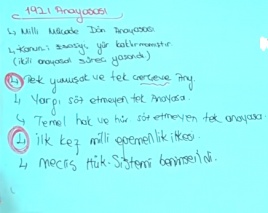 1921 Anayasası
↳ Milli Mücade Dön Anayasası
↳ Kanuni Esasiyi yür. kaldırmamıştır.
(ikili anayasal süreç yaşandı)
↳ Tek yumuşak ve tek çerçeve Any.
↳ Yargı söz etmeyen tek Anayasa.
↳ Temel hak ve hür. söz etmeyen tek anayasa.
↳ İlk kez milli egemenlik ilkesi.
↳ Meclis Hük. Sistemi benimsendi.